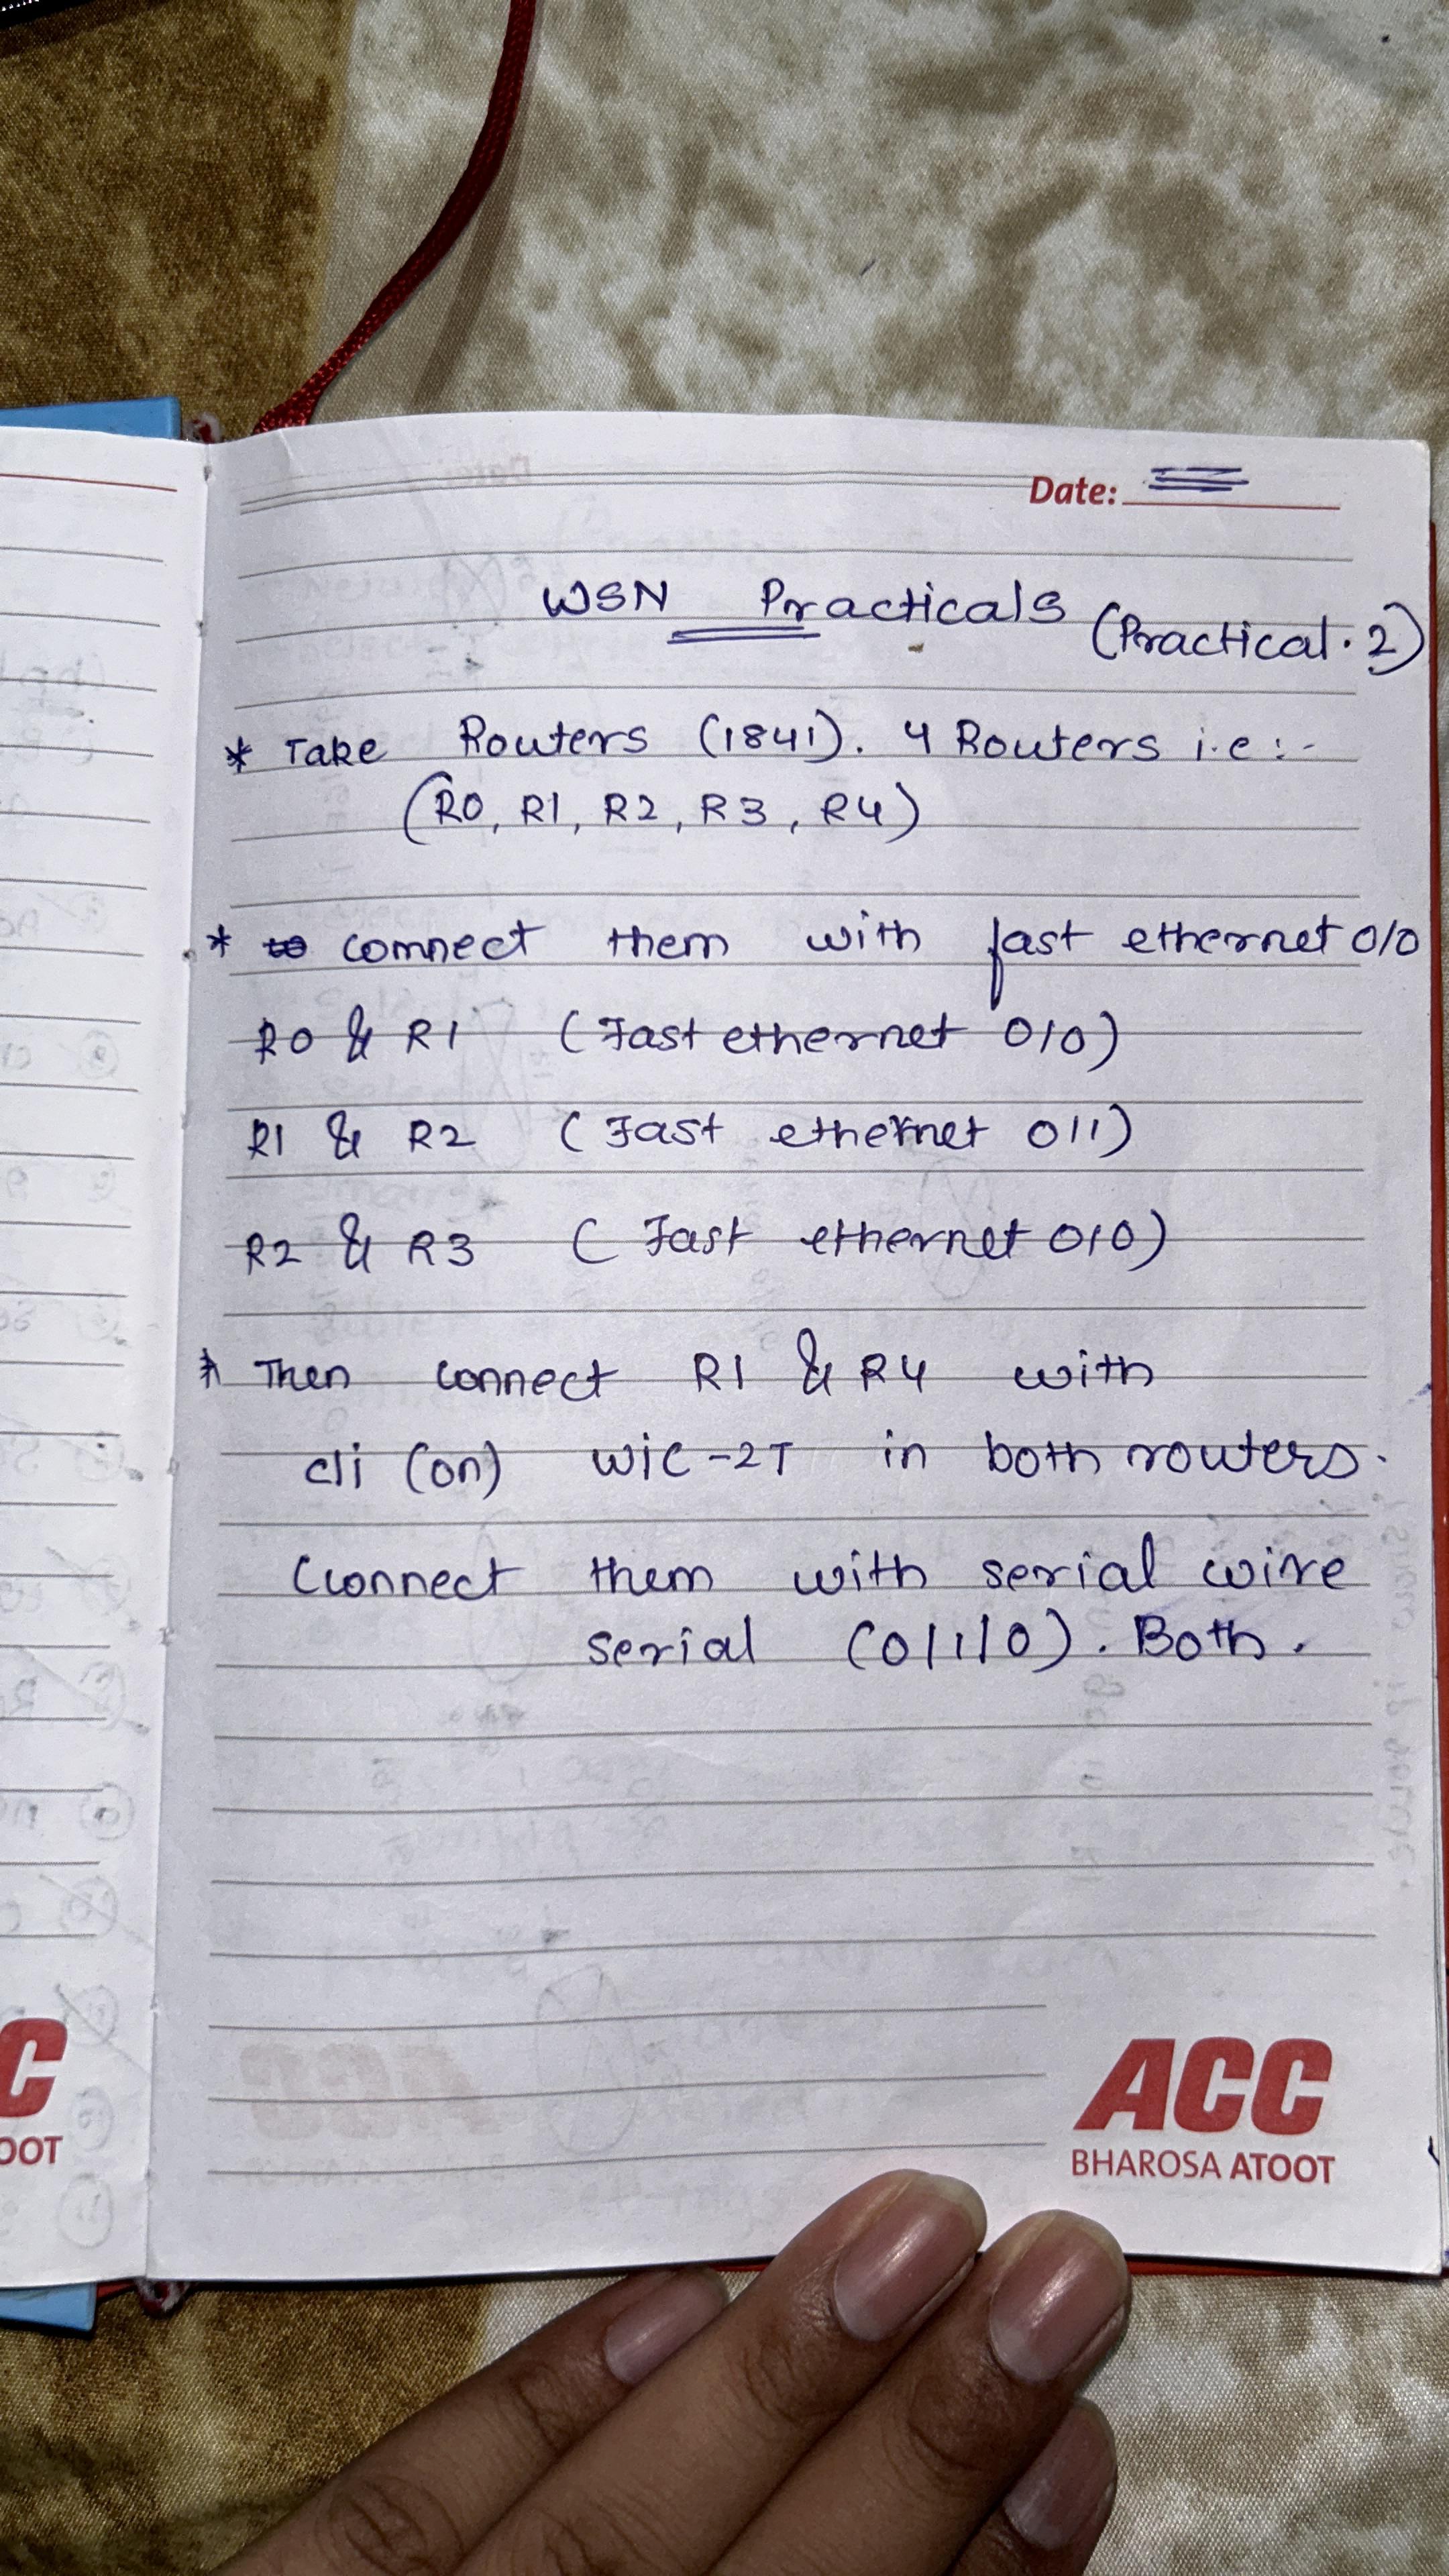 Date:
WSN Practicals (Practical. 2)
* Take Routers (1841). 4 Routers i.e :-
(R0, R1, R2, R3, R4)
* connect them with fast ethernet 0/0
R0 & R1 (Fast ethernet 0/0)
R1 & R2 (Fast ethernet 0/1)
R2 & R3 (Fast ethernet 0/0)
* Then connect R1 & R4 with
cli (on) WIC-2T in both routers.
Cconnect them with serial wire
serial (0/1/0). Both.
C
OOT
ACC
BHAROSA ATOOT